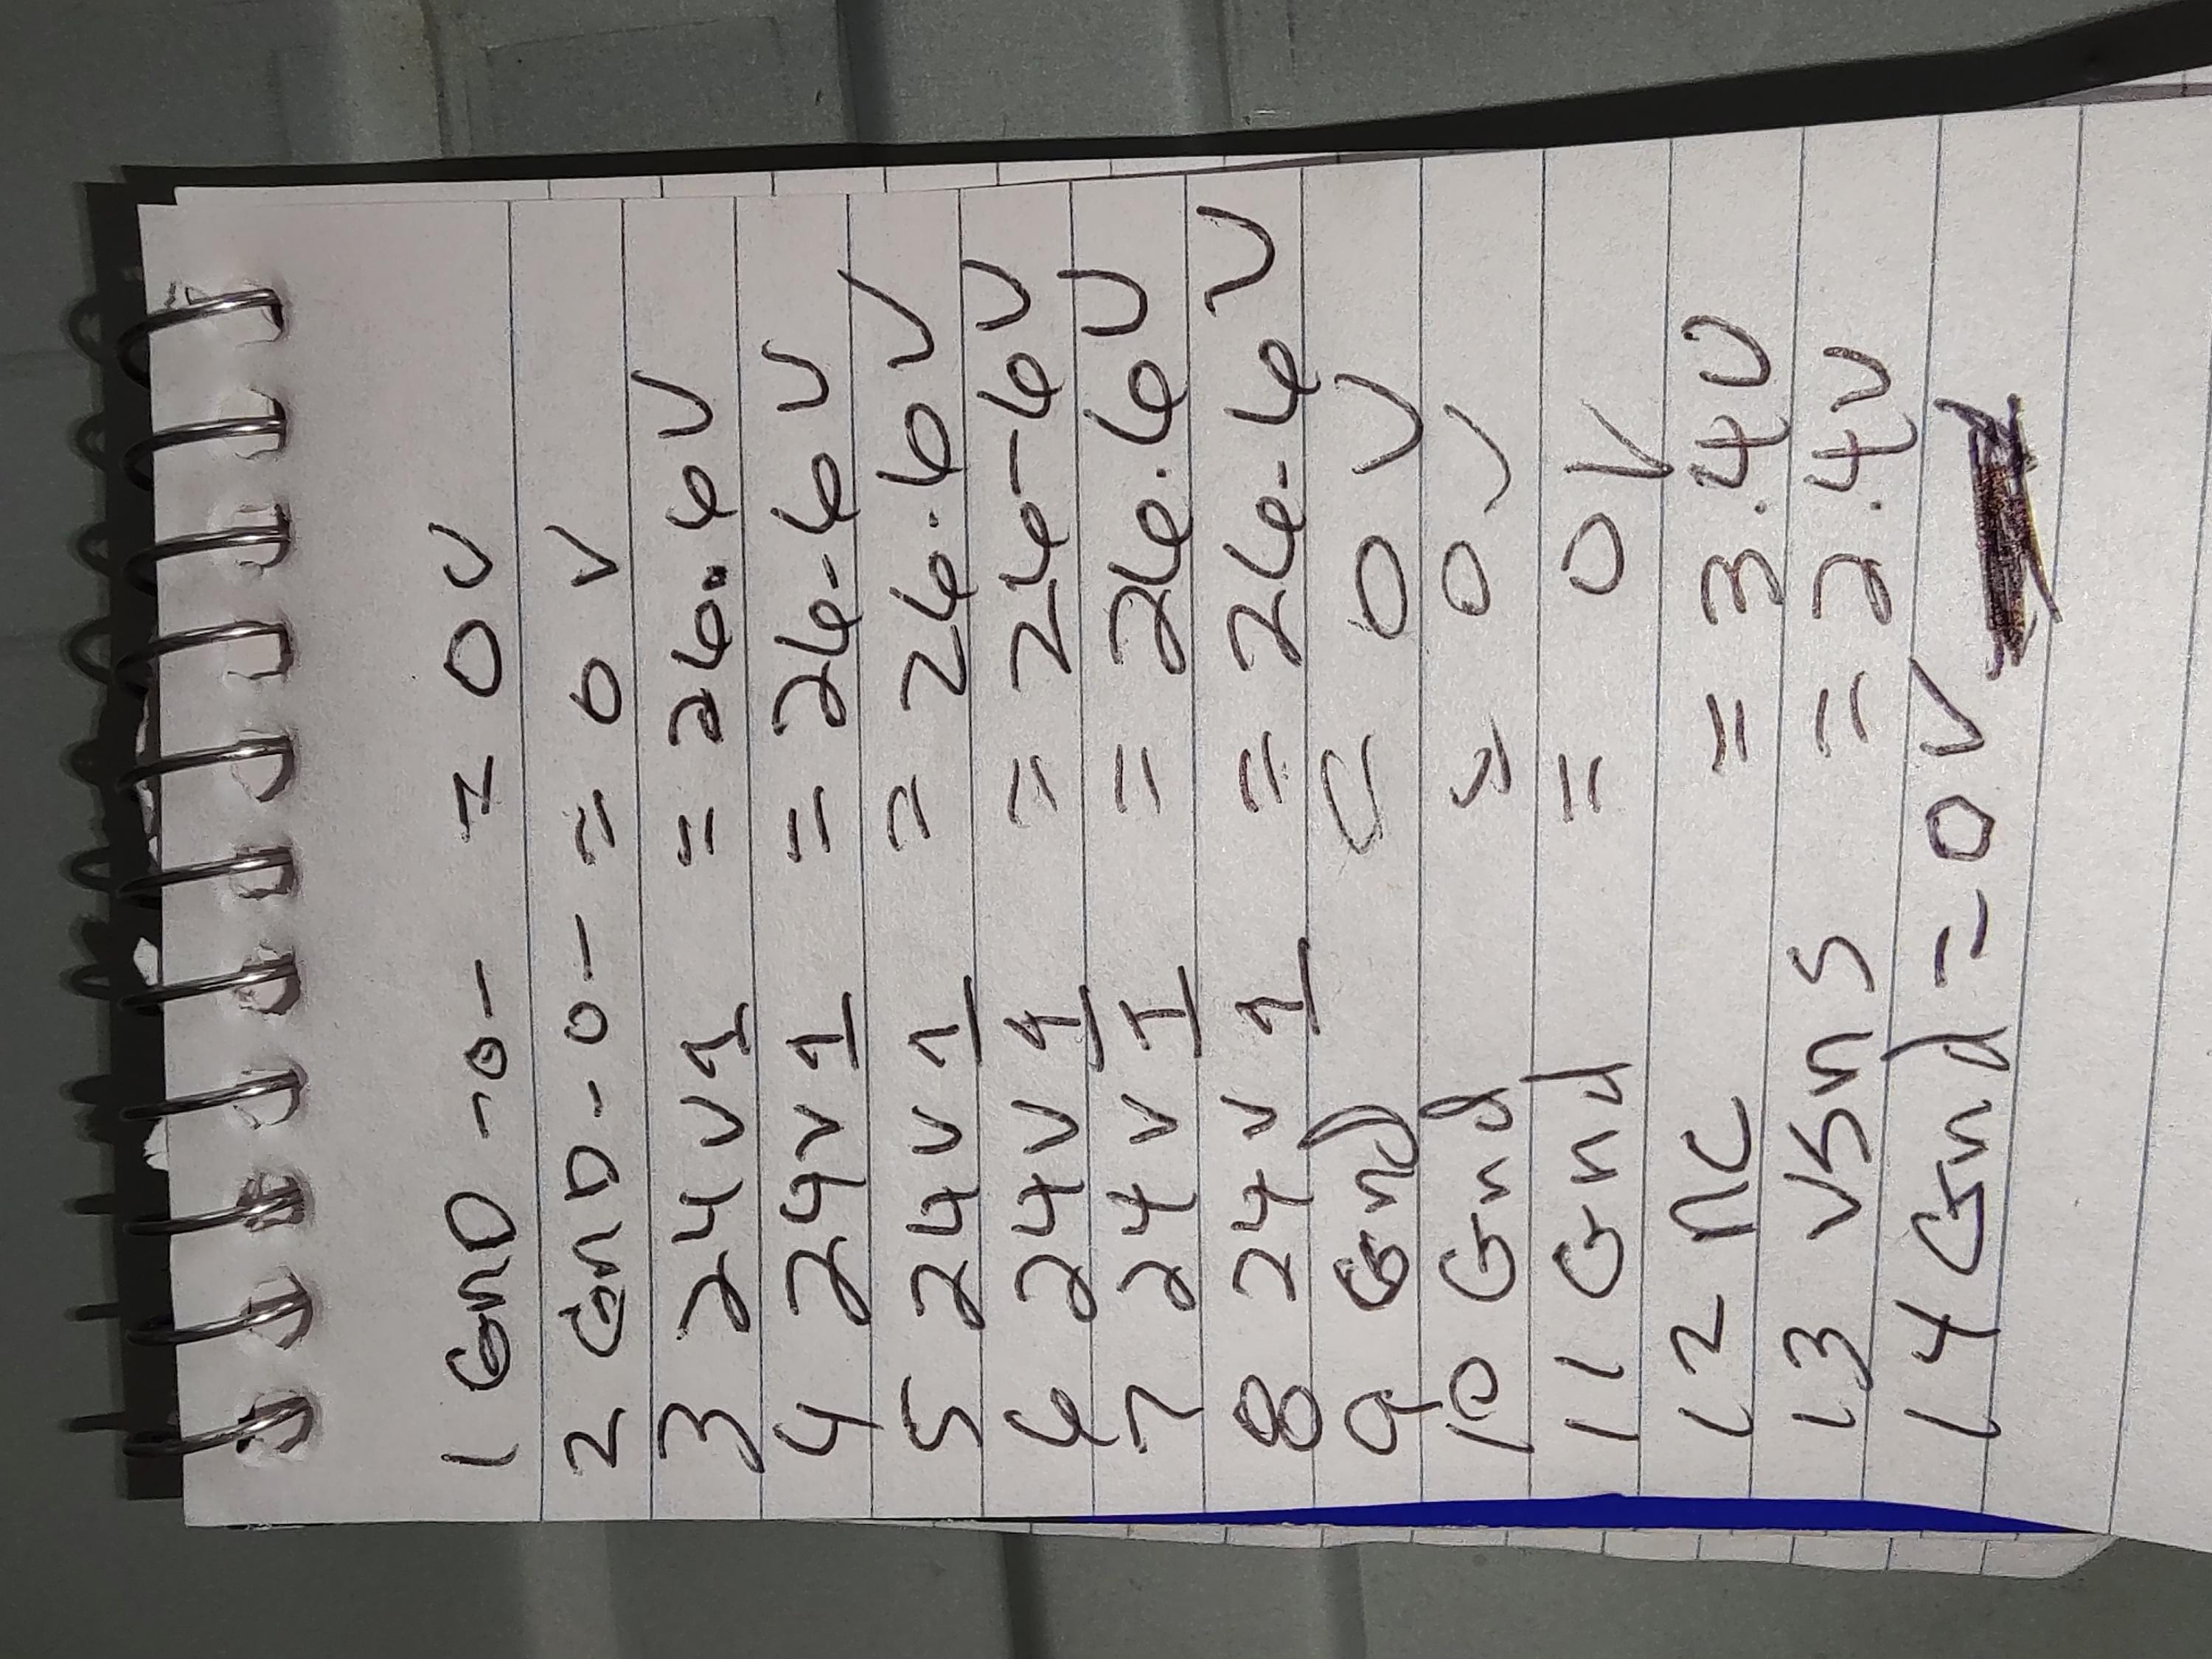 1 GND -0- = 0V
2 GND -0- = 0V
3 24V1 = 26.6V
4 24V1 = 26.6V
5 24V1 = 26.6V
6 24V1 = 26.6V
7 24V1 = 26.6V
8 24V1 = 26.6V
9 Gnd = 0V
10 Gnd = 0V
11 Gnd = 0V
12 NC = 3.4V
13 VSNS = 2.4V
14 Gnd = 0V